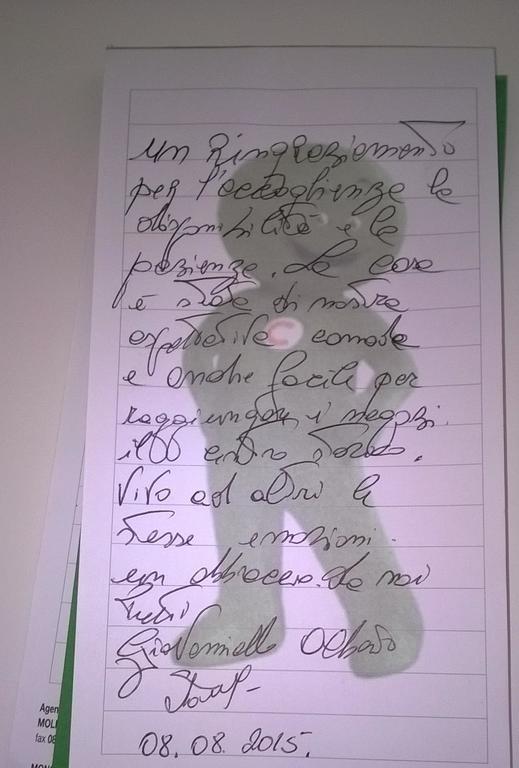 un Ringraziamento
per l'accoglienza la
disponibilità e la
pazienza. La casa
è stata di nostra
aspettativa comoda
e anche facile per
raggiungere i negozi.
il centro storico.
Vivo ad altri le
stesse emozioni.
un abbraccio. da noi
tutti
Giovanniello
08.08.2015.
C
Agen
MOL
fax 08